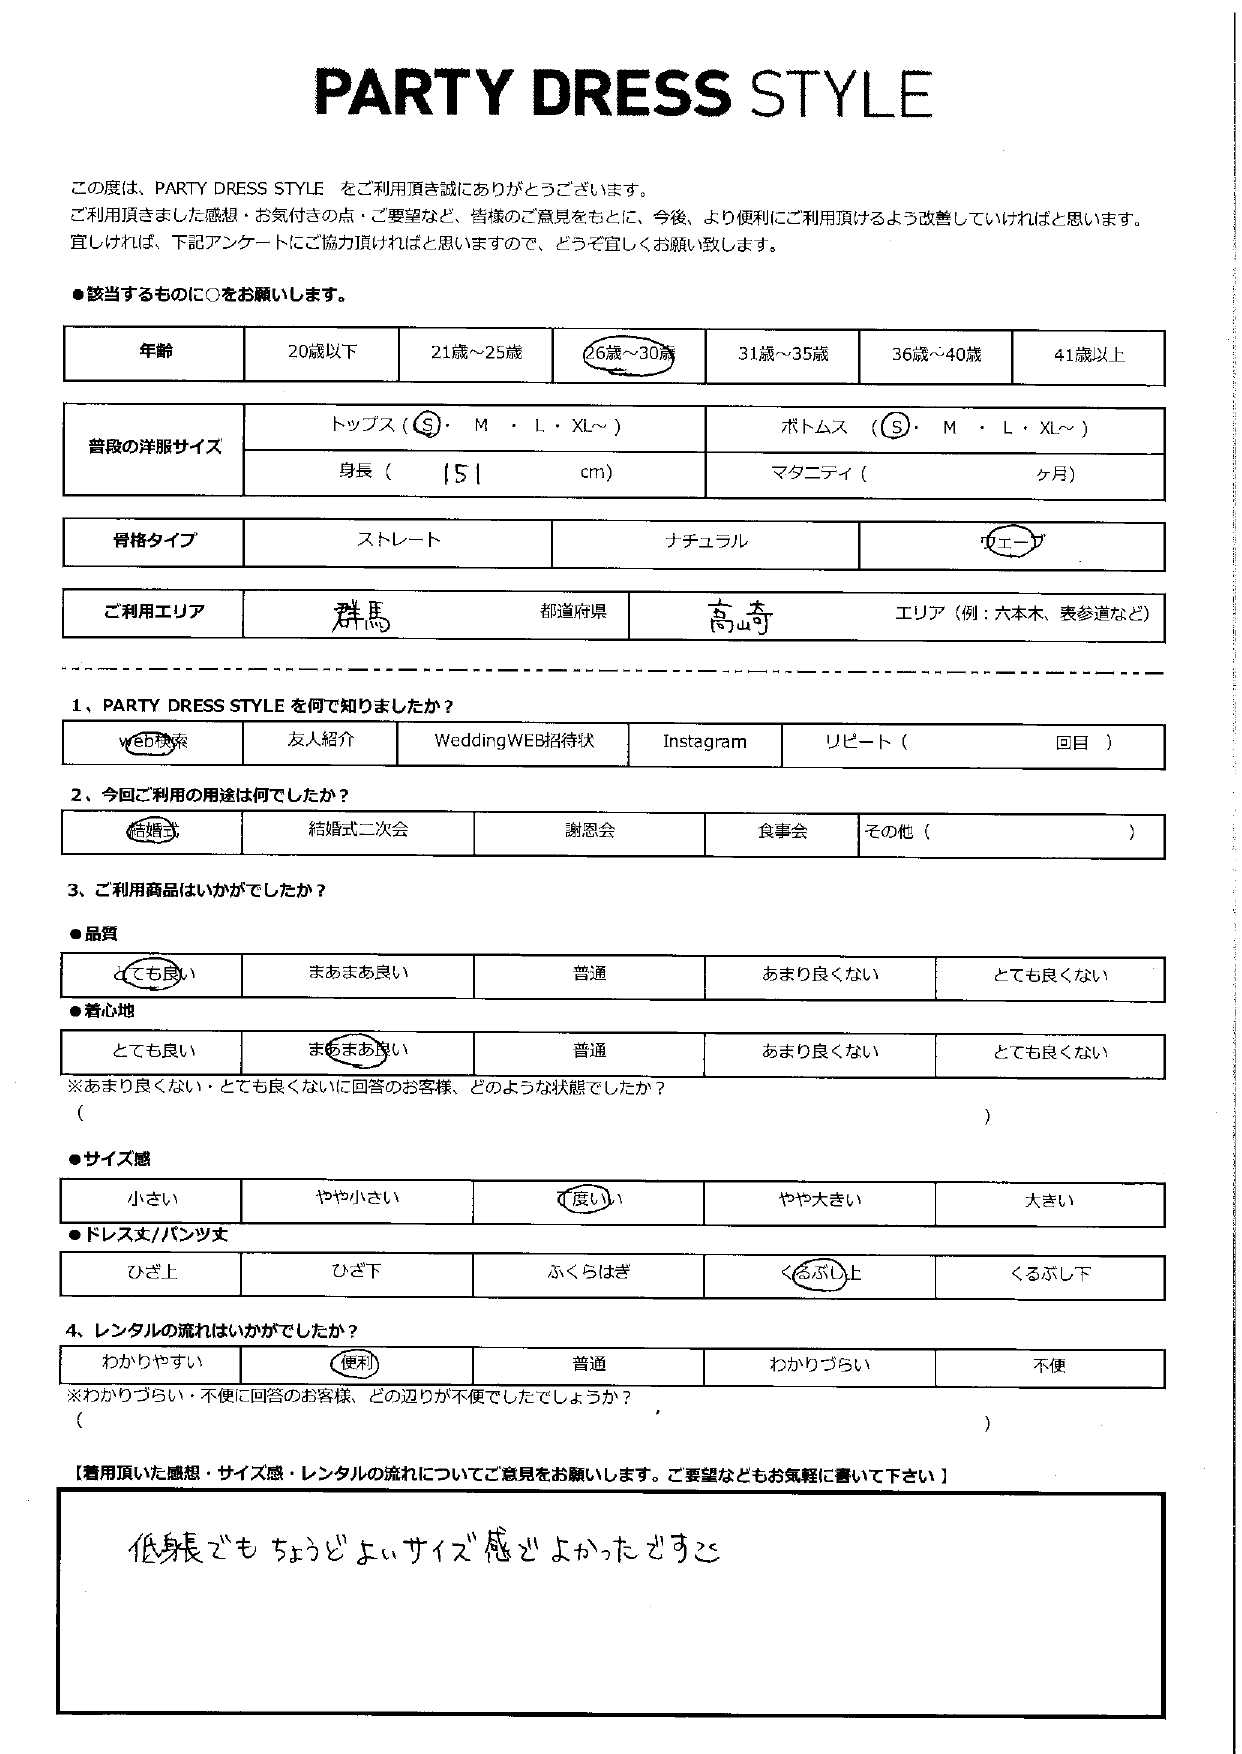 PARTY DRESS STYLE
この度は、PARTY DRESS STYLE をご利用頂き誠にありがとうございます。
ご利用頂きました感想・お気付きの点・ご要望など、皆様のご意見をもとに、今後、より便利にご利用頂けるよう改善していければと思います。
宜しければ、下記アンケートにご協力頂ければと思いますので、どうぞ宜しくお願い致します。
●該当するものに○をお願いします。
年齢 20歳以下 21歳～25歳 26歳～30歳 31歳～35歳 36歳～40歳 41歳以上
普段の洋服サイズ トップス ( S ・ M ・ L ・ XL～ ) ボトムス ( S ・ M ・ L ・ XL～ )
身長 ( 151 cm) マタニティ ( ヶ月)
骨格タイプ ストレート ナチュラル ウェーブ
ご利用エリア 群馬 都道府県 高崎 エリア (例：六本木、表参道など)
1、PARTY DRESS STYLE を何で知りましたか？
web検索 友人紹介 WeddingWEB招待状 Instagram リピート ( 回目 )
2、今回ご利用の用途は何でしたか？
結婚式 結婚式二次会 謝恩会 食事会 その他 ( )
3、ご利用商品はいかがでしたか？
●品質
とても良い まあまあ良い 普通 あまり良くない とても良くない
●着心地
とても良い まあまあ良い 普通 あまり良くない とても良くない
※あまり良くない・とても良くないに回答のお客様、どのような状態でしたか？
( )
●サイズ感
小さい やや小さい 丁度いい やや大きい 大きい
●ドレス丈/パンツ丈
ひざ上 ひざ下 ふくらはぎ くるぶし上 くるぶし下
4、レンタルの流れはいかがでしたか？
わかりやすい 便利 普通 わかりづらい 不便
※わかりづらい・不便に回答のお客様、どの辺りが不便でしたでしょうか？
( )
【着用頂いた感想・サイズ感・レンタルの流れについてご意見をお願いします。ご要望などもお気軽に書いて下さい】
低身長でもちょうどよいサイズ感でよかったです